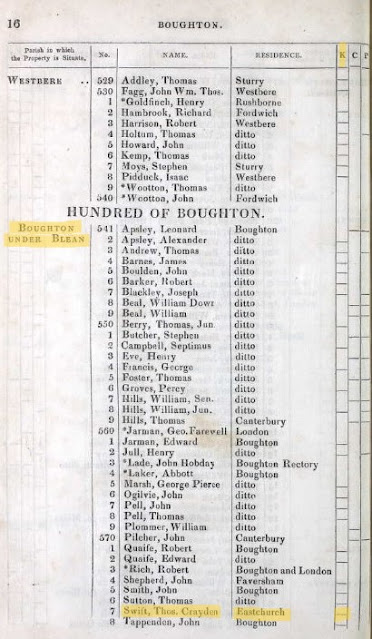 16 BOUGHTON.
Parish in which the Property is Situate. No. NAME. RESIDENCE. K C P
WESTBERE .. 529 Addley, Thomas Sturry
530 Fagg, John Wm. Thos. Westbere
1 *Goldfinch, Henry Rushborne
2 Hambrook, Richard Fordwich
3 Harrison, Robert Westbere
4 Holtum, Thomas ditto
5 Howard, John ditto
6 Kemp, Thomas ditto
7 Moys, Stephen Sturry
8 Pidduck, Isaac Westbere
9 *Wootton, Thomas ditto
540 *Wootton, John Fordwich
HUNDRED OF BOUGHTON.
BOUGHTON 541 Apsley, Leonard Boughton
UNDER BLEAN 2 Apsley, Alexander ditto
3 Andrew, Thomas ditto
4 Barnes, James ditto
5 Boulden, John ditto
6 Barker, Robert ditto
7 Blackley, Joseph ditto
8 Beal, William Dowz ditto
9 Beal, William ditto
550 Berry, Thomas, Jun. ditto
1 Butcher, Stephen ditto
2 Campbell, Septimus ditto
3 Eve, Henry ditto
4 Francis, George ditto
5 Foster, Thomas ditto
6 Groves, Percy ditto
7 Hills, William, Sen. ditto
8 Hills, William, Jun. ditto
9 Hills, Thomas Canterbury
560 *Jarman, Geo. Farewell London
1 Jarman, Edward Boughton
2 Jull, Henry ditto
3 *Lade, John Hobday Boughton Rectory
4 *Laker, Abbott Boughton
5 Marsh, George Pierce ditto
6 Ogilvie, John ditto
7 Pell, John ditto
8 Pell, Thomas ditto
9 Plommer, William ditto
570 Pilcher, John Canterbury
1 Quaife, Robert Boughton
2 Quaife, Edward ditto
3 *Rich, Robert Boughton and London
4 Shepherd, John Faversham
5 Smith, John Boughton
6 Sutton, Thomas ditto
7 Swift, Thos. Crayden Eastchurch
8 Tappenden, John Boughton